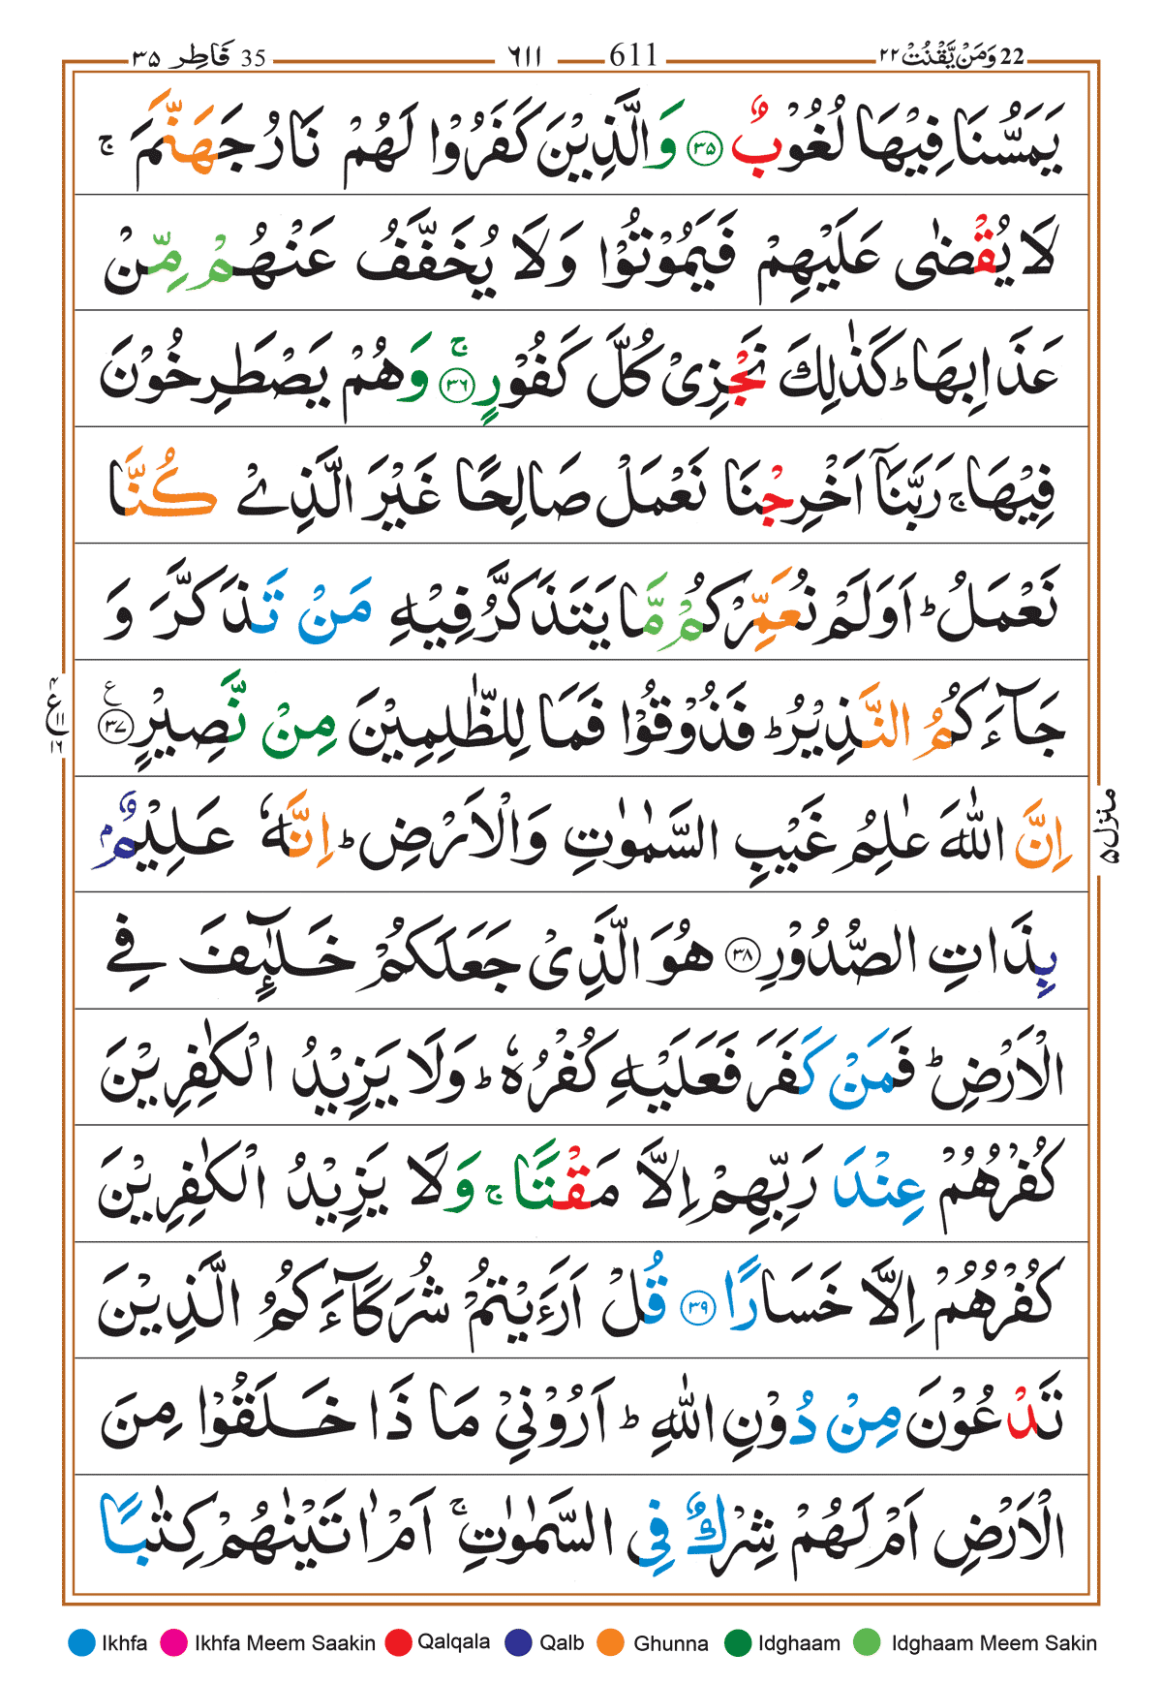 35 فَاطِر ٣٥
٦١١ 611
22 وَمَنْ يَّقْنُتْ ٢٢
يَمَسُّنَا فِيْهَا لُغُوْبٌ ۝٣٥ وَالَّذِيْنَ كَفَرُوْا لَهُمْ نَارُ جَهَنَّمَ ۚ
لَا يُقْضٰى عَلَيْهِمْ فَيَمُوْتُوْا وَلَا يُخَفَّفُ عَنْهُمْ مِّنْ
عَذَابِهَا ؕ كَذٰلِكَ نَجْزِىْ كُلَّ كَفُوْرٍ ۚ ۝٣٦ وَهُمْ يَصْطَرِخُوْنَ
فِيْهَا ۚ رَبَّنَاۤ اَخْرِجْنَا نَعْمَلْ صَالِحًا غَيْرَ الَّذِىْ كُنَّا
نَعْمَلُ ؕ اَوَلَمْ نُعَمِّرْكُمْ مَّا يَتَذَكَّرُ فِيْهِ مَنْ تَذَكَّرَ وَ
جَآءَكُمُ النَّذِيْرُ ؕ فَذُوْقُوْا فَمَا لِلظّٰلِمِيْنَ مِنْ نَّصِيْرٍ ۝٣٧ ع
اِنَّ اللّٰهَ عٰلِمُ غَيْبِ السَّمٰوٰتِ وَالْاَرْضِ ؕ اِنَّهٗ عَلِيْمٌۢ
بِذَاتِ الصُّدُوْرِ ۝٣٨ هُوَ الَّذِىْ جَعَلَكُمْ خَلٰٓئِفَ فِى
الْاَرْضِ ؕ فَمَنْ كَفَرَ فَعَلَيْهِ كُفْرُهٗ ؕ وَلَا يَزِيْدُ الْكٰفِرِيْنَ
كُفْرُهُمْ عِنْدَ رَبِّهِمْ اِلَّا مَقْتًا ۚ وَلَا يَزِيْدُ الْكٰفِرِيْنَ
كُفْرُهُمْ اِلَّا خَسَارًا ۝٣٩ قُلْ اَرَءَيْتُمْ شُرَكَآءَكُمُ الَّذِيْنَ
تَدْعُوْنَ مِنْ دُوْنِ اللّٰهِ ؕ اَرُوْنِىْ مَا ذَا خَلَقُوْا مِنَ
الْاَرْضِ اَمْ لَهُمْ شِرْكٌ فِى السَّمٰوٰتِ ۚ اَمْ اٰتَيْنٰهُمْ كِتٰبًا
ع ٤ ١١ ١٦
منزل ۵
Ikhfa Ikhfa Meem Saakin Qalqala Qalb Ghunna Idghaam Idghaam Meem Sakin